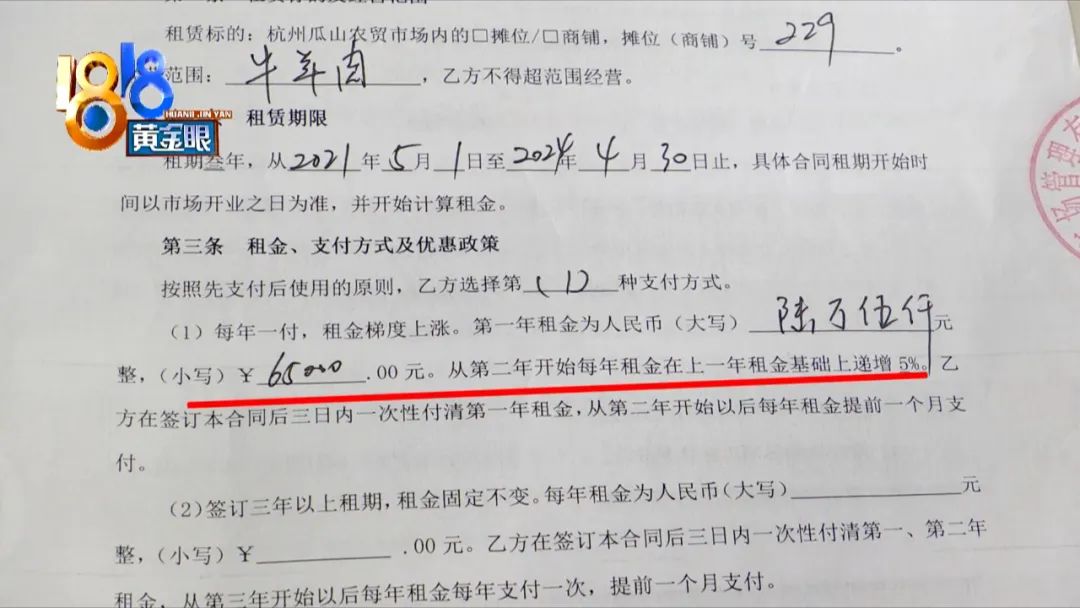 租赁标的：杭州瓜山农贸市场内的□摊位/□商铺，摊位（商铺）号 229 。
范围： 牛羊肉 ，乙方不得超范围经营。
1818
HUANG JIN YAN
黄金眼
租赁期限
租期叁年，从2021年5月1日至2024年4月30日止，具体合同租期开始时
间以市场开业之日为准，并开始计算租金。
第三条 租金、支付方式及优惠政策
按照先支付后使用的原则，乙方选择第（1）种支付方式。
（1）每年一付，租金梯度上涨。第一年租金为人民币（大写）陆万伍仟元
整，（小写）￥65000.00元。从第二年开始每年租金在上一年租金基础上递增5%。乙
方在签订本合同后三日内一次性付清第一年租金，从第二年开始以后每年租金提前一个月支
付。
（2）签订三年以上租期，租金固定不变。每年租金为人民币（大写）元
整，（小写）￥ .00元。乙方在签订本合同后三日内一次性付清第一、第二年
租金，从第三年开始以后每年租金每年支付一次，提前一个月支付。